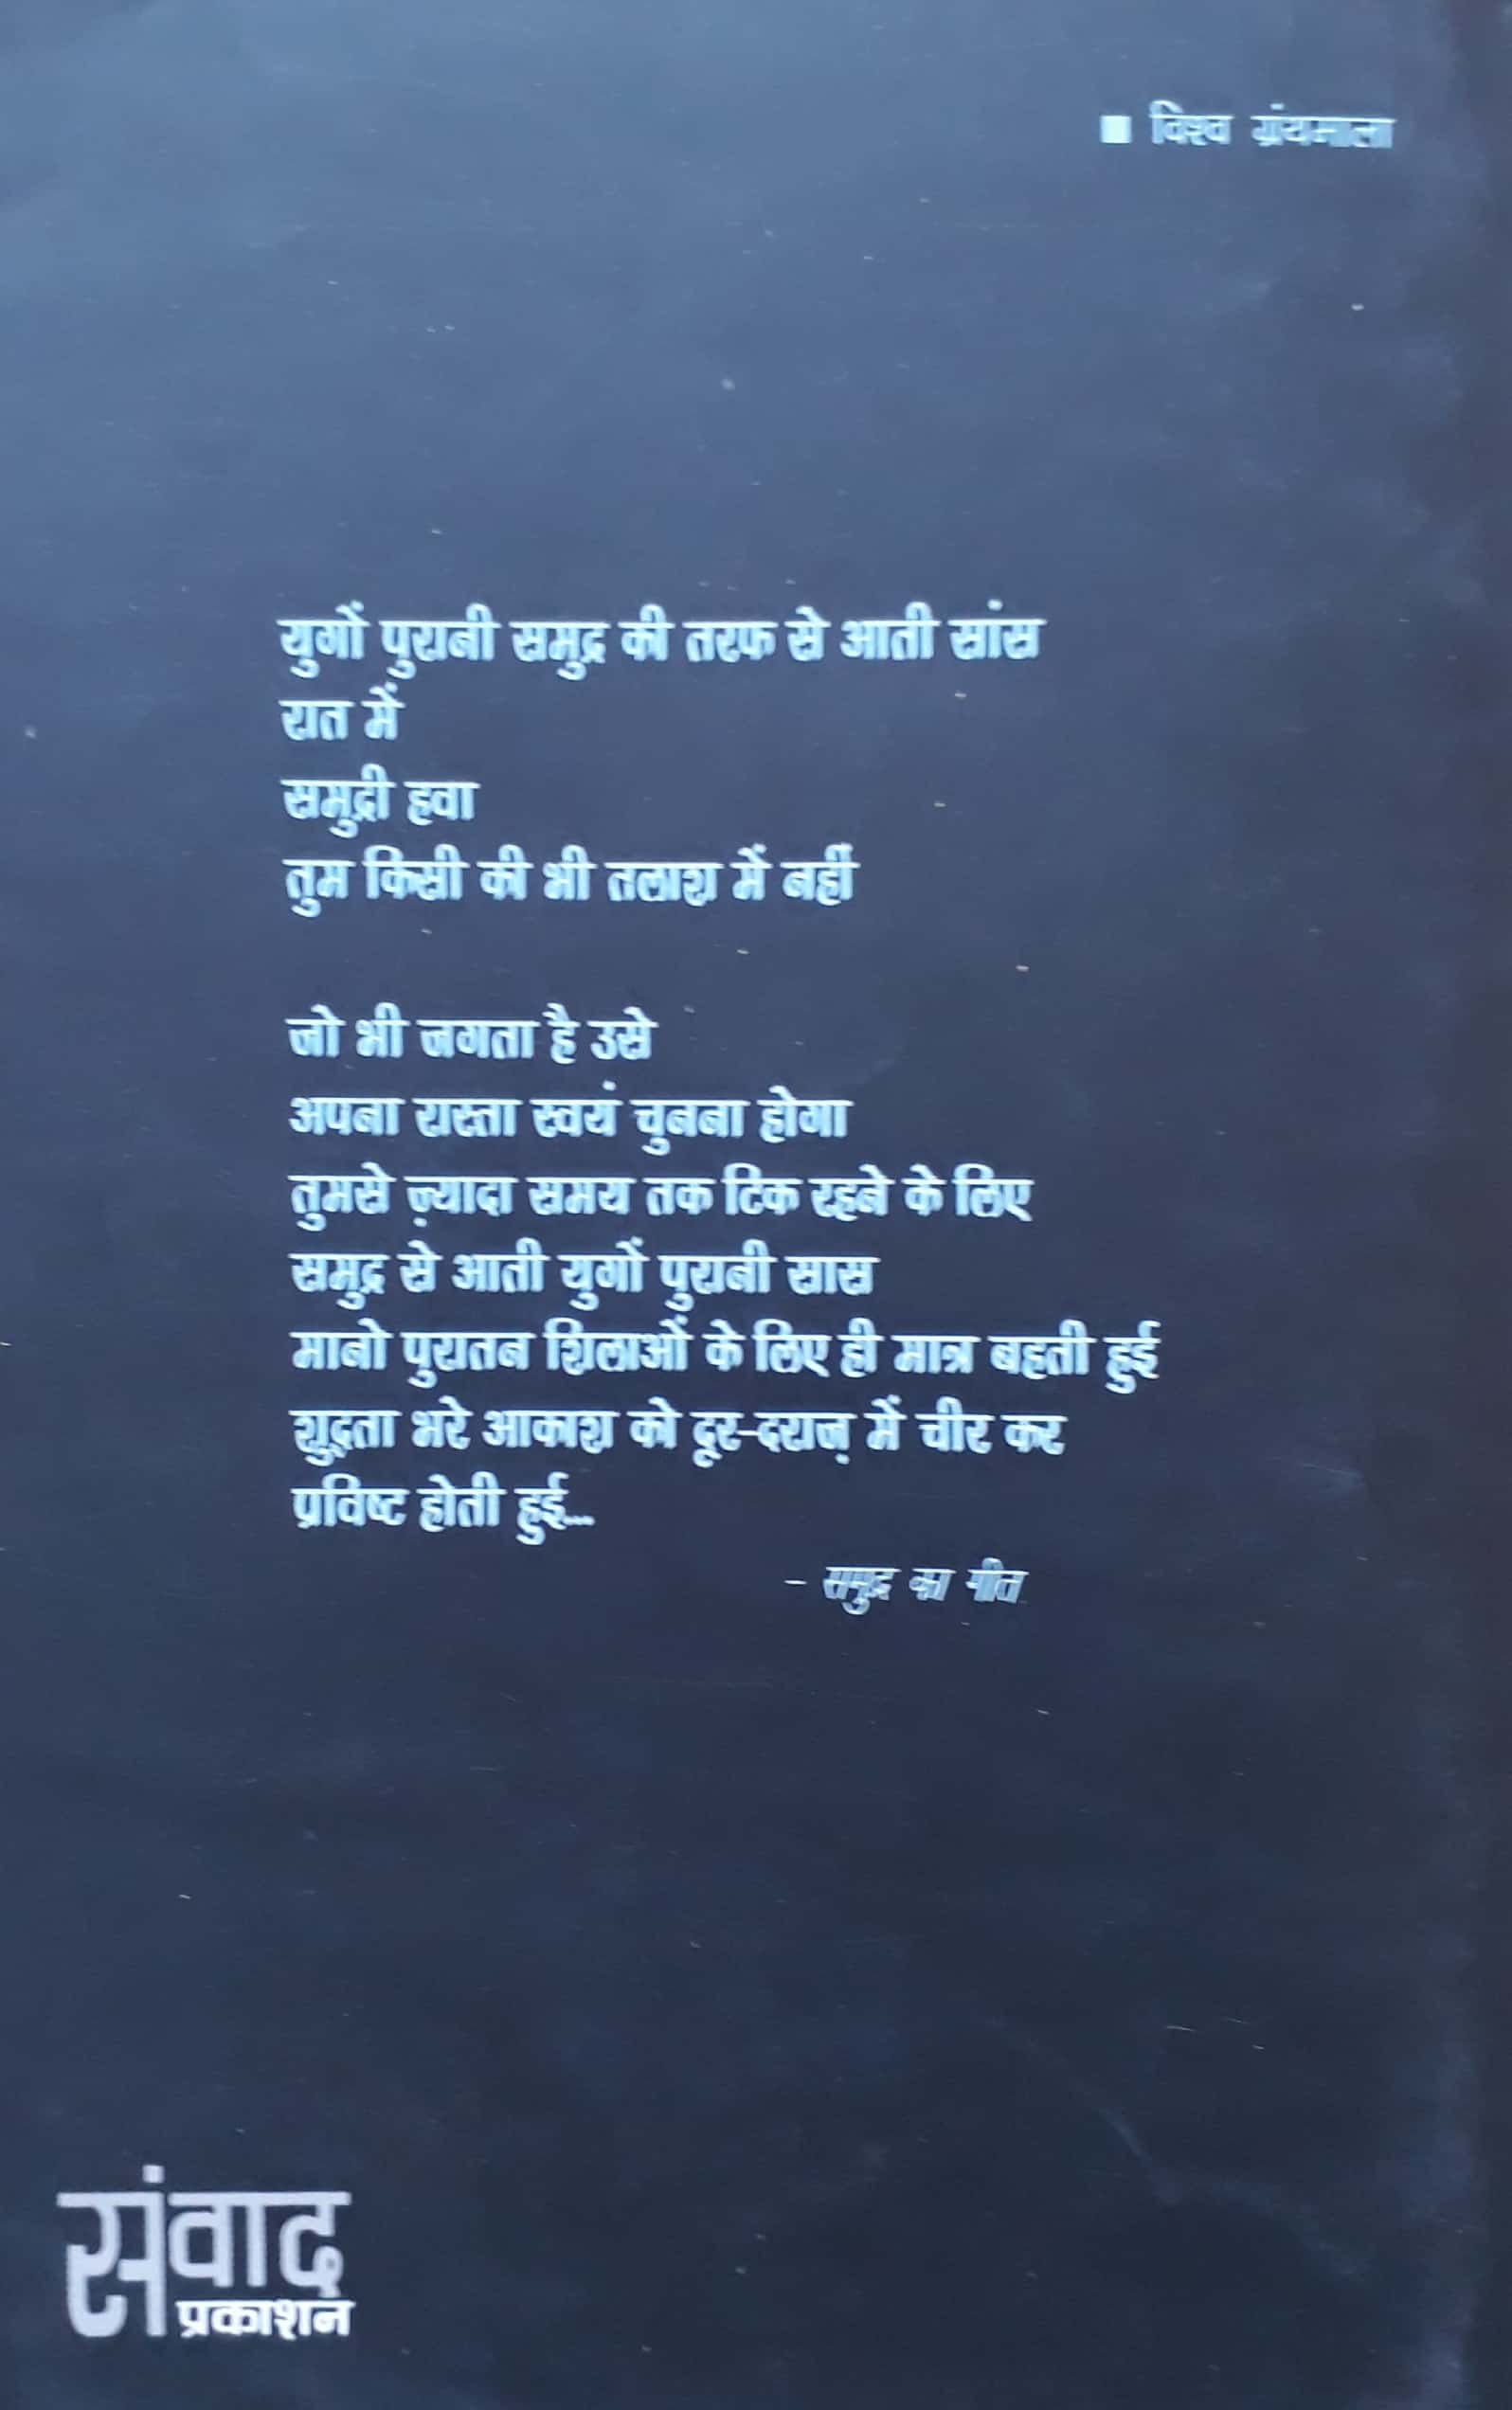 ■ विश्व ग्रंथमाला
युगों पुरानी समुद्र की तरफ से आती सांस
रात में
समुद्री हवा
तुम किसी की भी तलाश में नहीं
जो भी जगता है उसे
अपना रास्ता स्वयं चुनना होगा
तुमसे ज़्यादा समय तक टिक रहने के लिए
समुद्र से आती युगों पुरानी सास
मानो पुरातन शिलाओं के लिए ही मात्र बहती हुई
शुद्धता भरे आकाश को दूर-दराज़ में चीर कर
प्रविष्ट होती हुई...
- समुद्र का गीत
संवाद
प्रकाशन